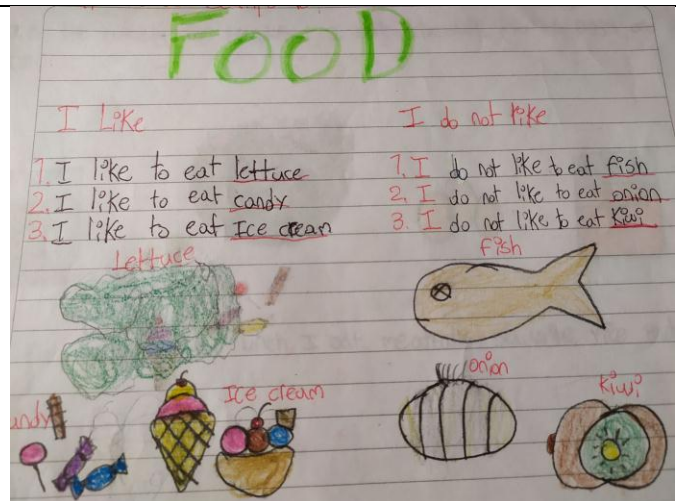 FOOD
I Like
1. I like to eat lettuce
2. I like to eat candy
3. I like to eat Ice cream
Lettuce
andy
Ice cream
I do not like
1. I do not like to eat fish
2. I do not like to eat onion
3. I do not like to eat Kiwi
Fish
onion
Kiwi